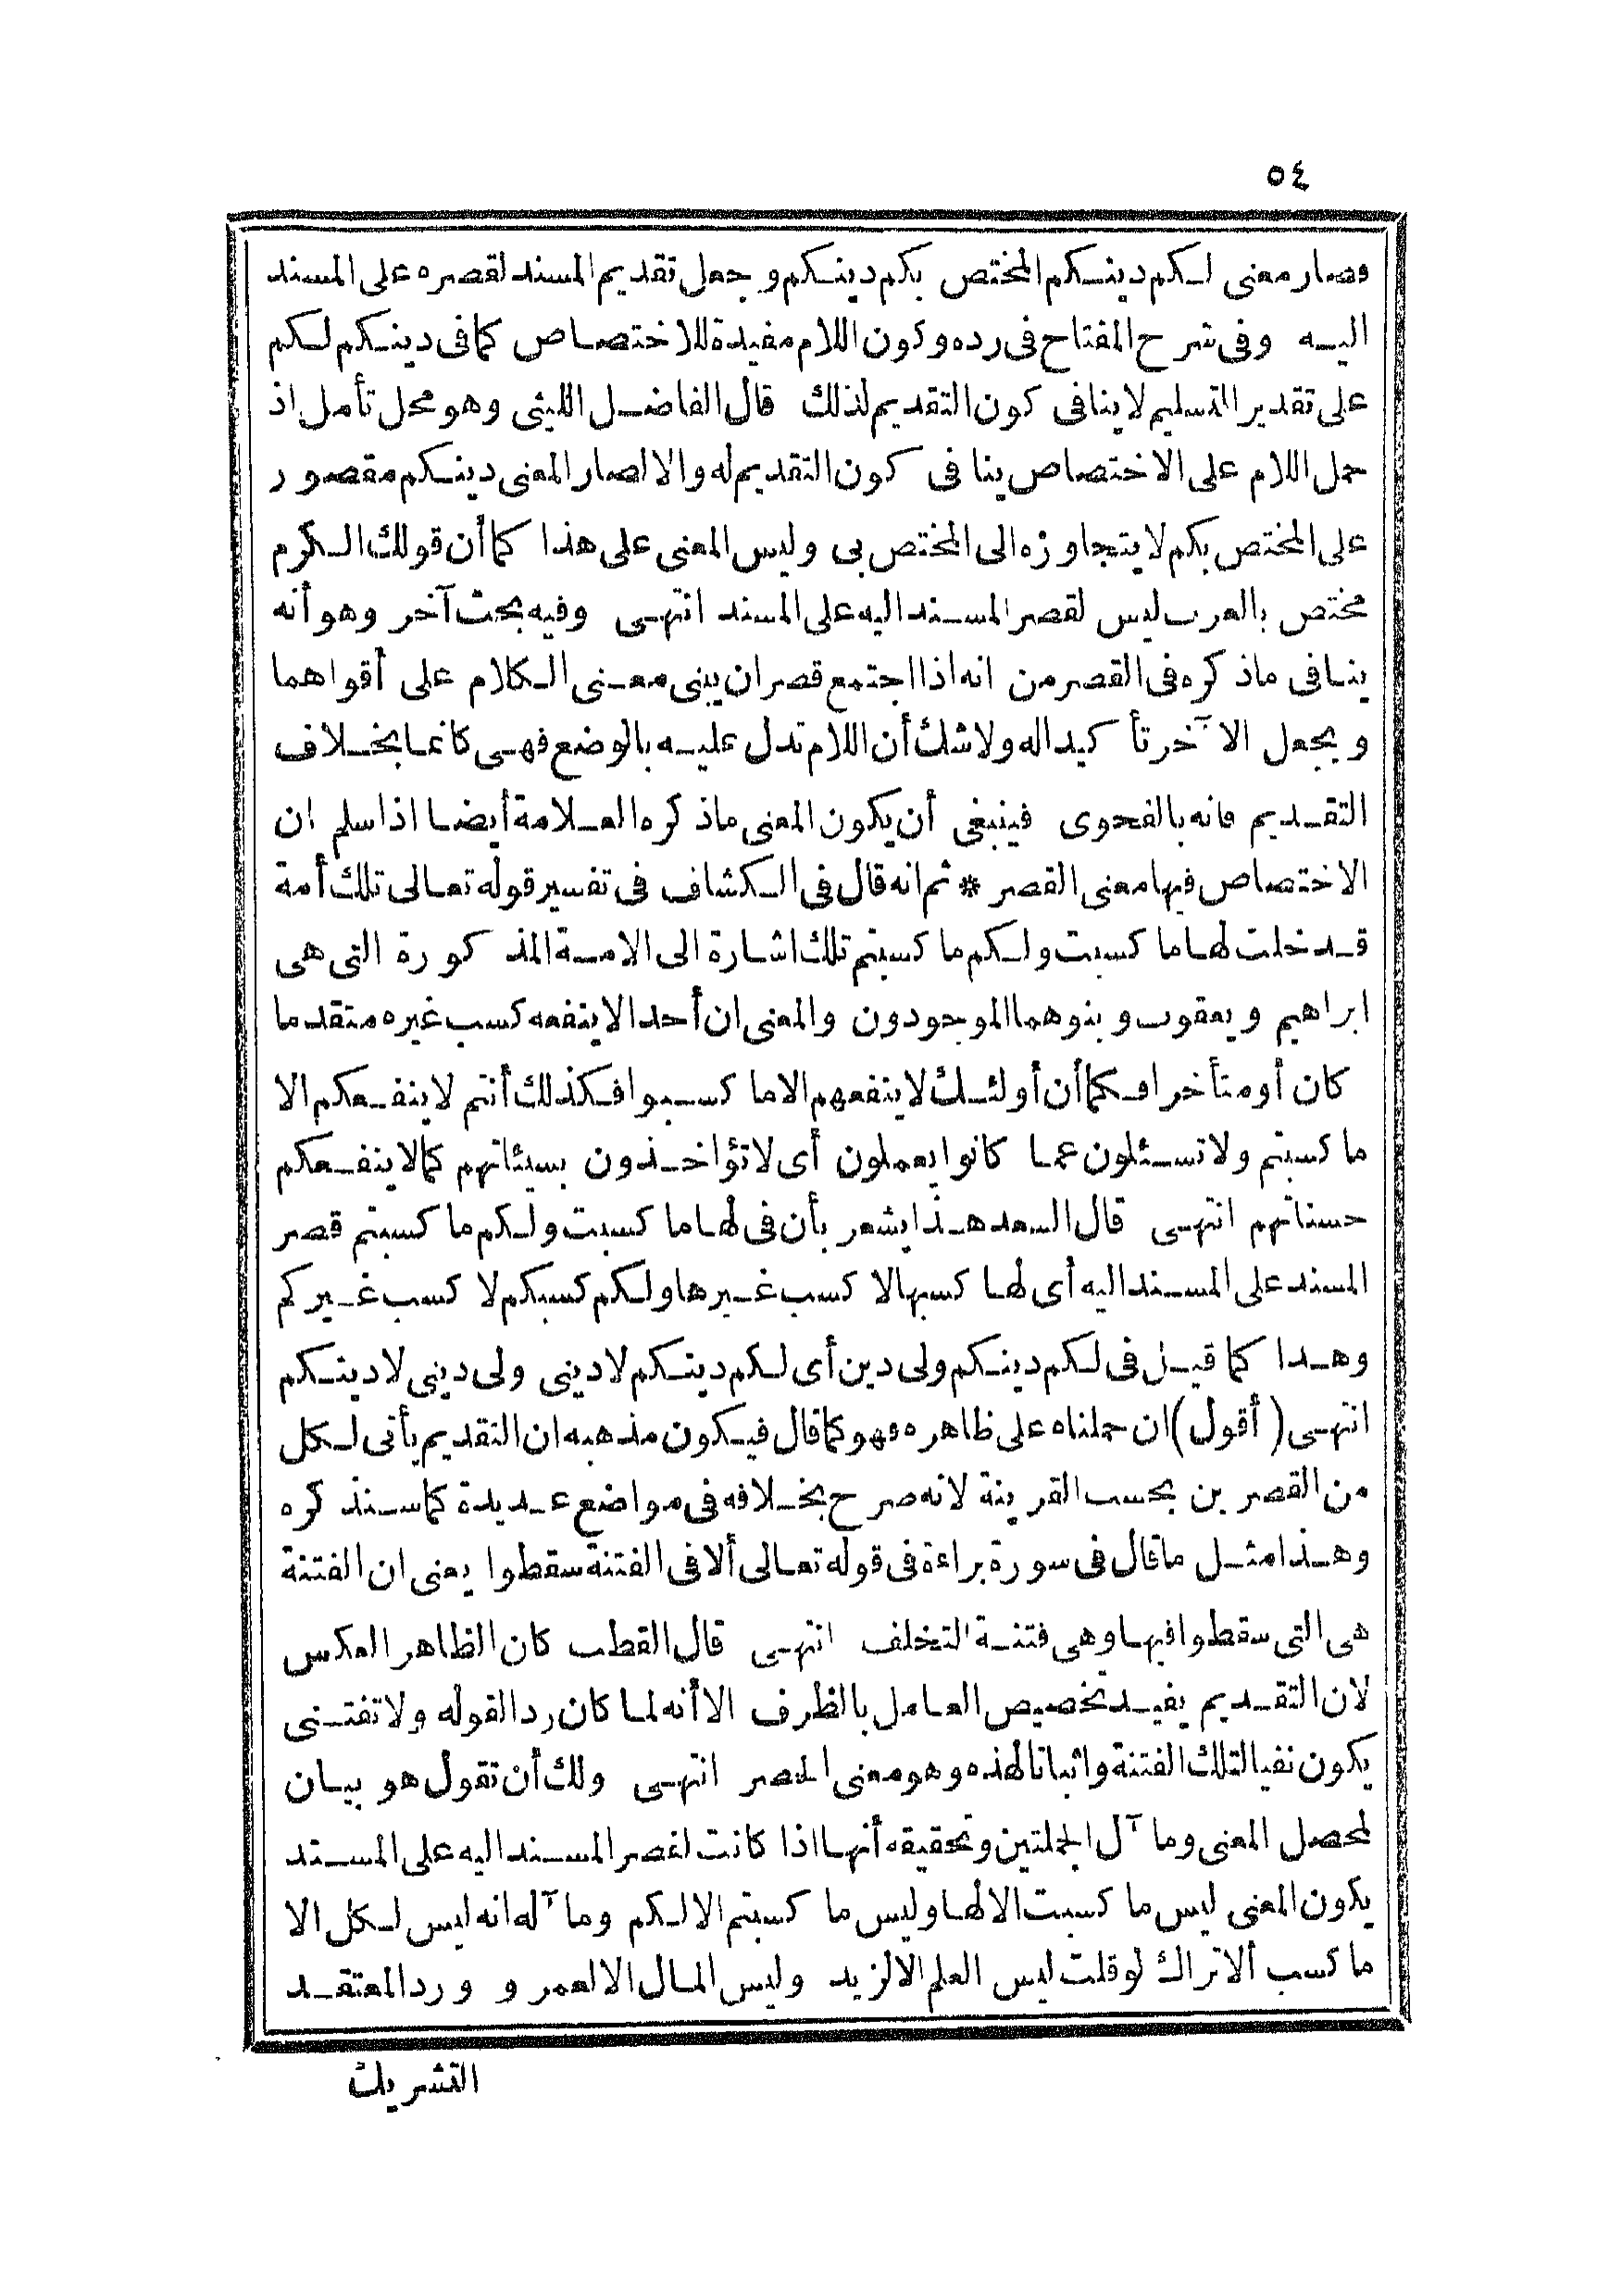 ٥٤
فصار معنى لكم دينكم المختص بكم دينكم وجعل تقديم المسند لقصره على المسند
اليه وفى شرح المفتاح فى رده وكون اللام مفيدة للاختصاص كما فى دينكم لكم
على تقدير التسليم لاينافى كون التقديم لذلك قال الفاضل الليثى وهو محل تأمل اذ
حمل اللام على الاختصاص ينافى كون التقديم له والالصار المعنى دينكم مقصور
على المختص بكم لا يتجاوزه الى المختص بى وليس المعنى على هذا كما أن قولك الكرم
مختص بالعرب ليس لقصر المسند اليه على المسند انتهى وفيه بحث آخر وهو أنه
ينافى ماذكره فى القصر من انه اذا اجتمع قصران يبنى معنى الكلام على أقواهما
ويجعل الآخر تأكيداله ولاشك أن اللام تدل عليه بالوضع فهى كانما بخلاف
التقديم فانه بالفحوى فينبغى أن يكون المعنى ماذكره العلامة أيضا اذا سلم ان
الاختصاص فيها معنى القصر * ثم انه قال فى الكشاف فى تفسير قوله تعالى تلك أمة
قد خلت لها ما كسبت ولكم ما كسبتم تلك اشارة الى الامة المذكورة التى هى
ابراهيم ويعقوب وبنوهما الموجودون والمعنى ان أحدا لاينفعه كسب غيره متقدما
كان أومتأخرا فكما أن أولئك لاينفعهم الاما كسبوا فكذلك أنتم لاينفعكم الا
ما كسبتم ولاتسئلون عما كانوا يعملون أى لاتؤاخذون بسيئاتهم كمالاينفعكم
حسناتهم انتهى قال السعد هذا يشعر بأن فى لها ما كسبت ولكم ما كسبتم قصر
المسند على المسند اليه أى لها كسبها لا كسب غيرها ولكم كسبكم لا كسب غيركم
وهذا كما قيل فى لكم دينكم ولى دين أى لكم دينكم لادينى ولى دينى لادينكم
انتهى (أقول) ان حملناه على ظاهره فهو كما قال فيكون مذهبه ان التقديم يأتى لكل
من القصرين بحسب القرينة لانه صرح بخلافه فى مواضع عديدة كماسنذكره
وهذا مثل ماقال فى سورة براءة فى قوله تعالى ألا فى الفتنة سقطوا يعنى ان الفتنة
هى التى سقطوا فيها وهى فتنة التخلف انتهى قال القطب كان الظاهر العكس
لان التقديم يفيد تخصيص العامل بالظرف الاأنه لما كان ردا لقوله ولاتفتنى
يكون نفيا لتلك الفتنة واثباتا لهذه وهو معنى الحصر انتهى ولك أن تقول هو بيان
لمحصل المعنى ومآل الجملتين وتحقيقه أنها اذا كانت لقصر المسند اليه على المسند
يكون المعنى ليس ما كسبت الالها وليس ما كسبتم الالكم ومآله انه ليس لكل الا
ما كسب ألاتراك لوقلت ليس العلم الالزيد وليس المال الالعمرو ورد المعتقد
التشريك